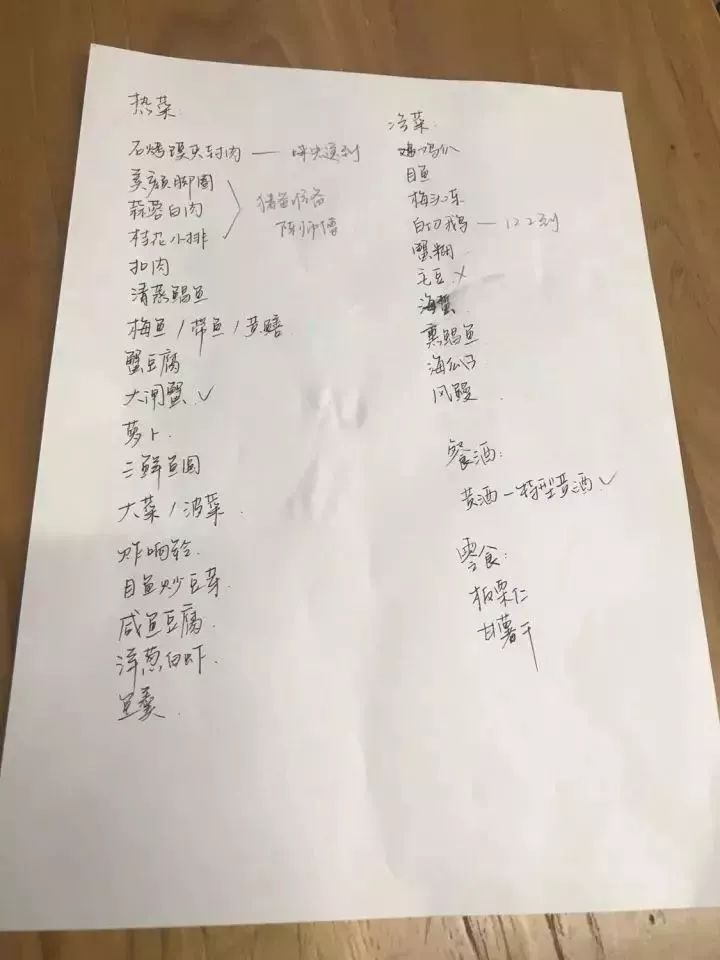 热菜
石烤馒头封肉 —
美颜脚圈
蒜蓉白肉
桂花小排
猪鱼综备
陈师傅
扣肉
清蒸鲳鱼
梅鱼/带鱼/黄鳝
蟹豆腐
大闸蟹 ✓
萝卜
三鲜鱼圆
大菜/波菜
炸响铃
目鱼炒豆芽
咸鱼豆腐
洋葱白虾
鱼羹
冷菜
鸡爪
目鱼
梅汁冻
白切鹅 — 122到
蟹糊
毛豆 ×
海蜇
熏鲳鱼
海瓜子
风鳗
餐酒:
黄酒 — 特型黄酒 ✓
零食:
板栗仁
甘薯干